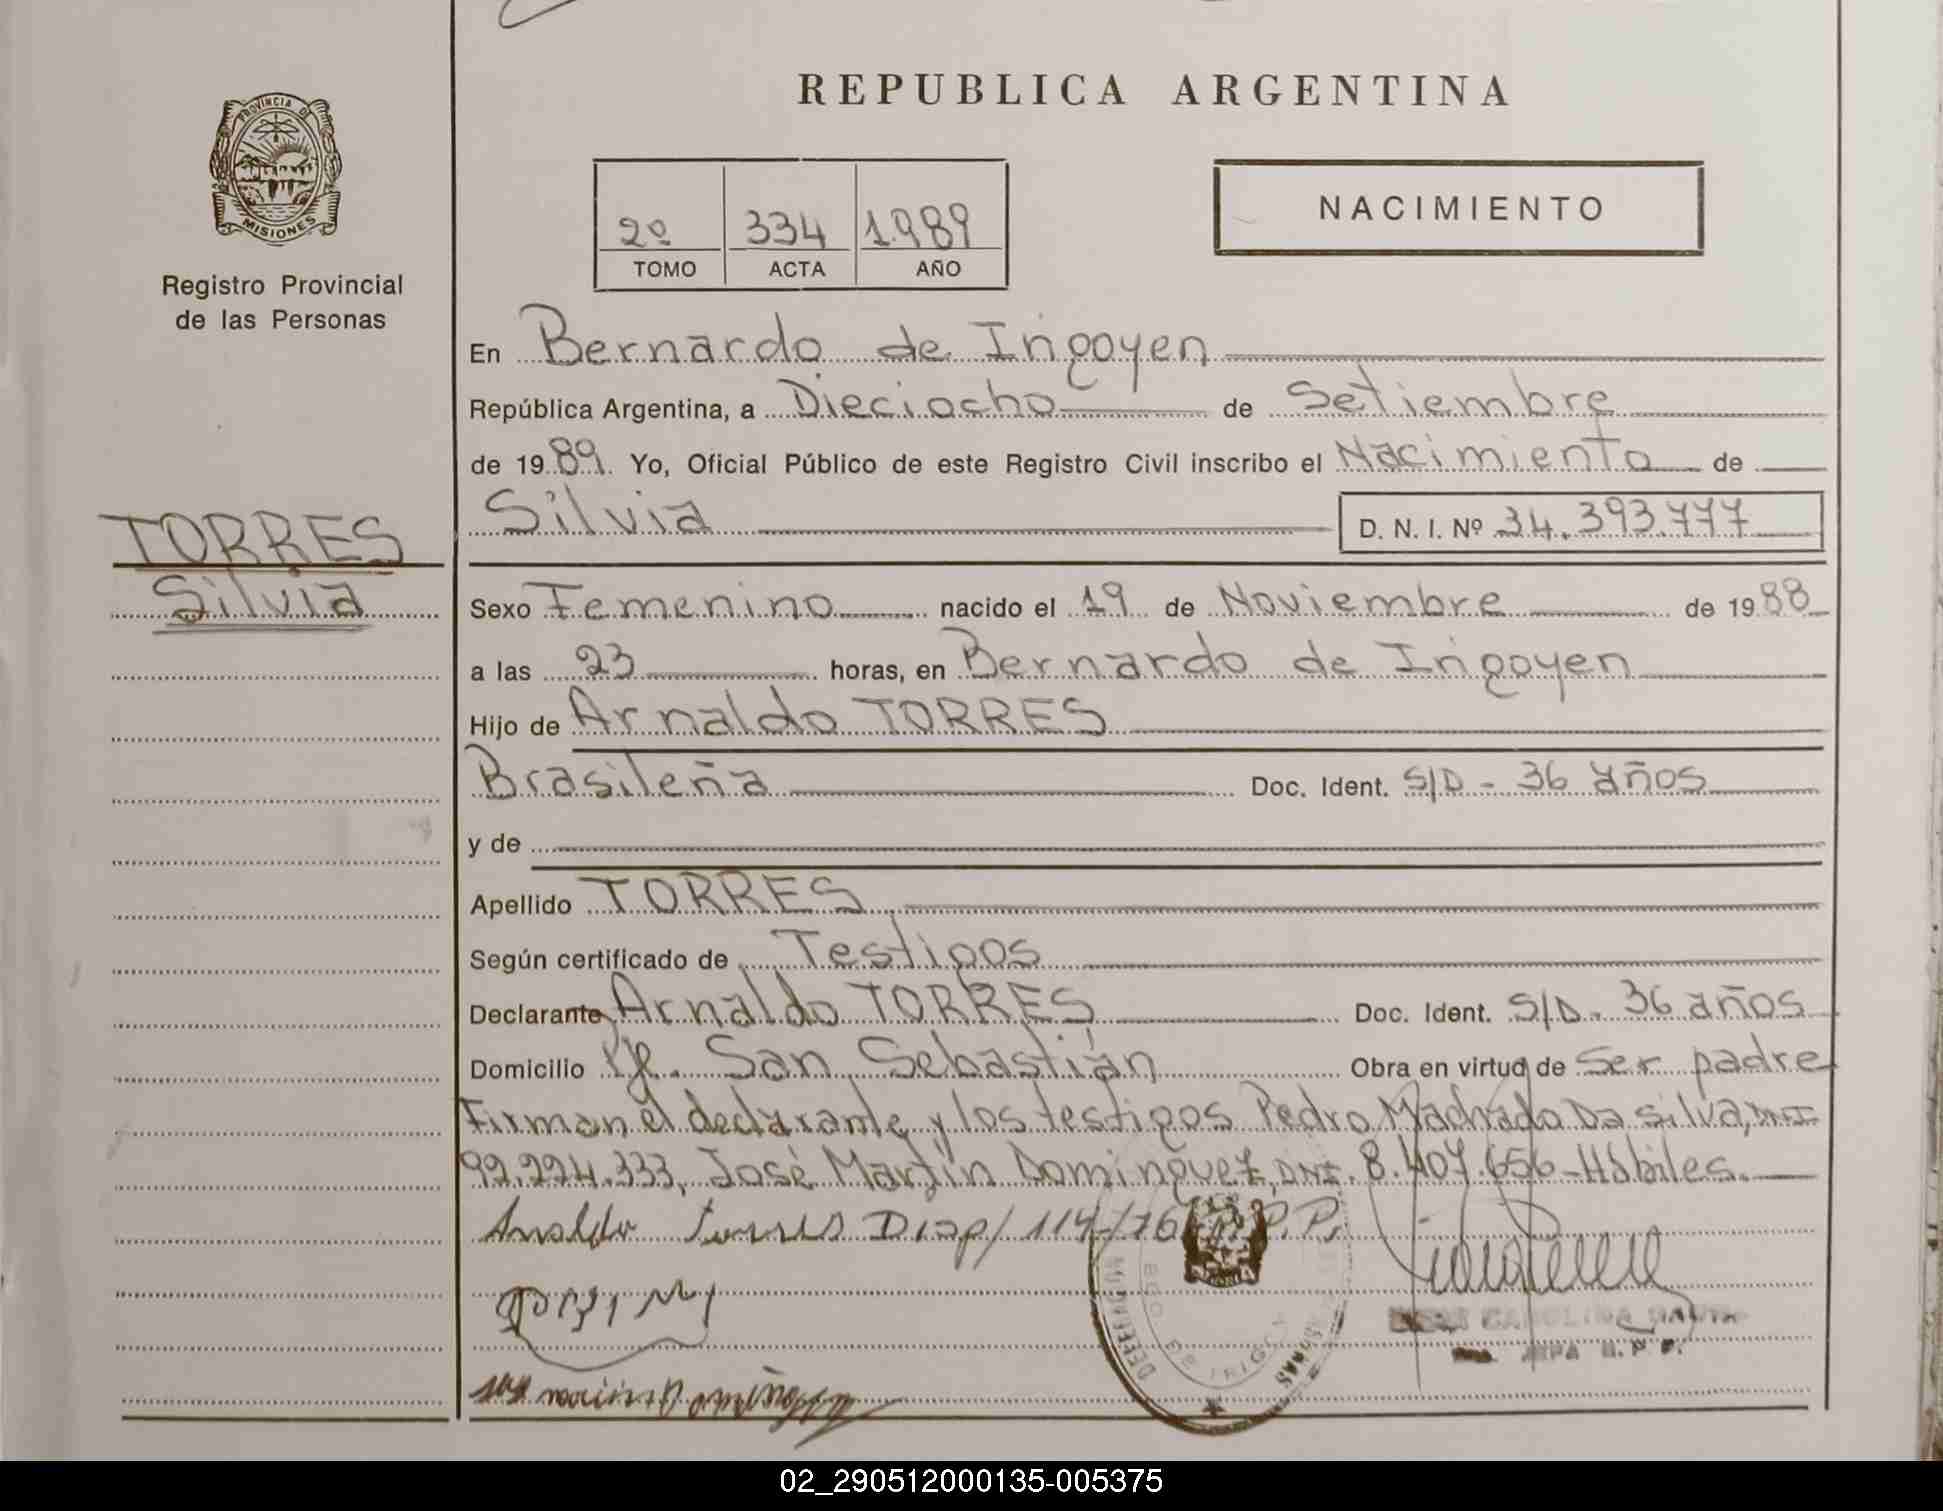 REPUBLICA ARGENTINA
PROVINCIA DE
MISIONES
Registro Provincial
de las Personas
2º 334 1989
TOMO ACTA AÑO
NACIMIENTO
En Bernardo de Irigoyen
República Argentina, a Dieciocho de Setiembre
de 1989. Yo, Oficial Público de este Registro Civil inscribo el Nacimiento de
Silvia D. N. I. Nº 34.393.777
TORRES
Silvia
Sexo Femenino nacido el 19 de Noviembre de 1988
a las 23 horas, en Bernardo de Irigoyen
Hijo de Arnaldo TORRES
Brasileña Doc. Ident. S/D - 36 años
y de
Apellido TORRES
Según certificado de Testigos
Declarante Arnaldo TORRES Doc. Ident. S/D. 36 años
Domicilio Pje. San Sebastián Obra en virtud de Ser padre
Firman el declarante y los testigos Pedro Machado Da Silva, DNI
92.224.333, José Martín Dominguez, DNI. 8.407.656-Hábiles.
Disp/ 114/76
CAROLINA
02_290512000135-005375